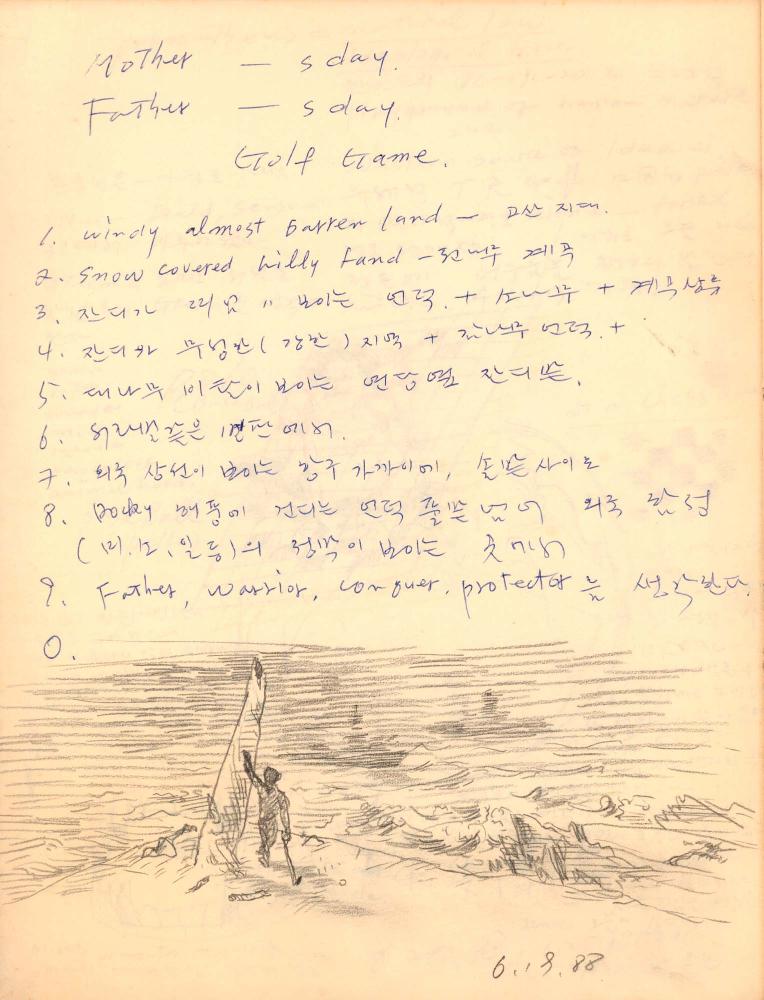 Mother — s day.
Father — s day.
Golf Game.
1. windy almost barren land — 고산 지대.
2. Snow covered hilly land - 전나무 계곡
3. 잔디가 " 보이는 언덕. + 소나무 + 계곡상류
4. 잔디가 무성한 ( 강한 ) 지역 + 잡나무 언덕. +
5. 대나무 이 보이는 연당옆 잔디뜰.
6. 에서.
7. 외국 상선이 보이는 항구 가까이에, 솔밭사이로
8. Rocky 해풍에 견디는 언덕 풀밭 넘어 외국 함정
(미.소.일 등)의 정박이 보이는 곳에서
9. Father, warrior, conquer, protector 를 생각한다.
0.
6.19.88